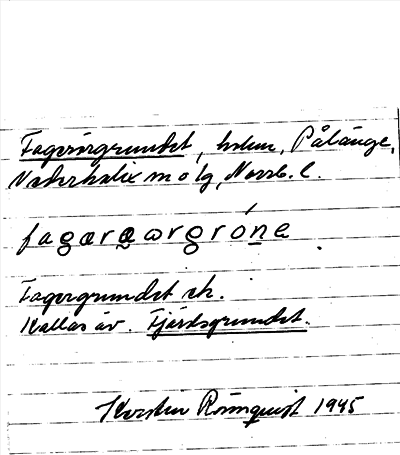 Fagerörgrundet, holme, Pålänge,
Nederkalix sn o lg, Norrb. l.
fagærᶐωrgróne
Fagergrundet ek.
Kallas äv. Fjärdsgrundet.
Kerstin Rönnquist 1945